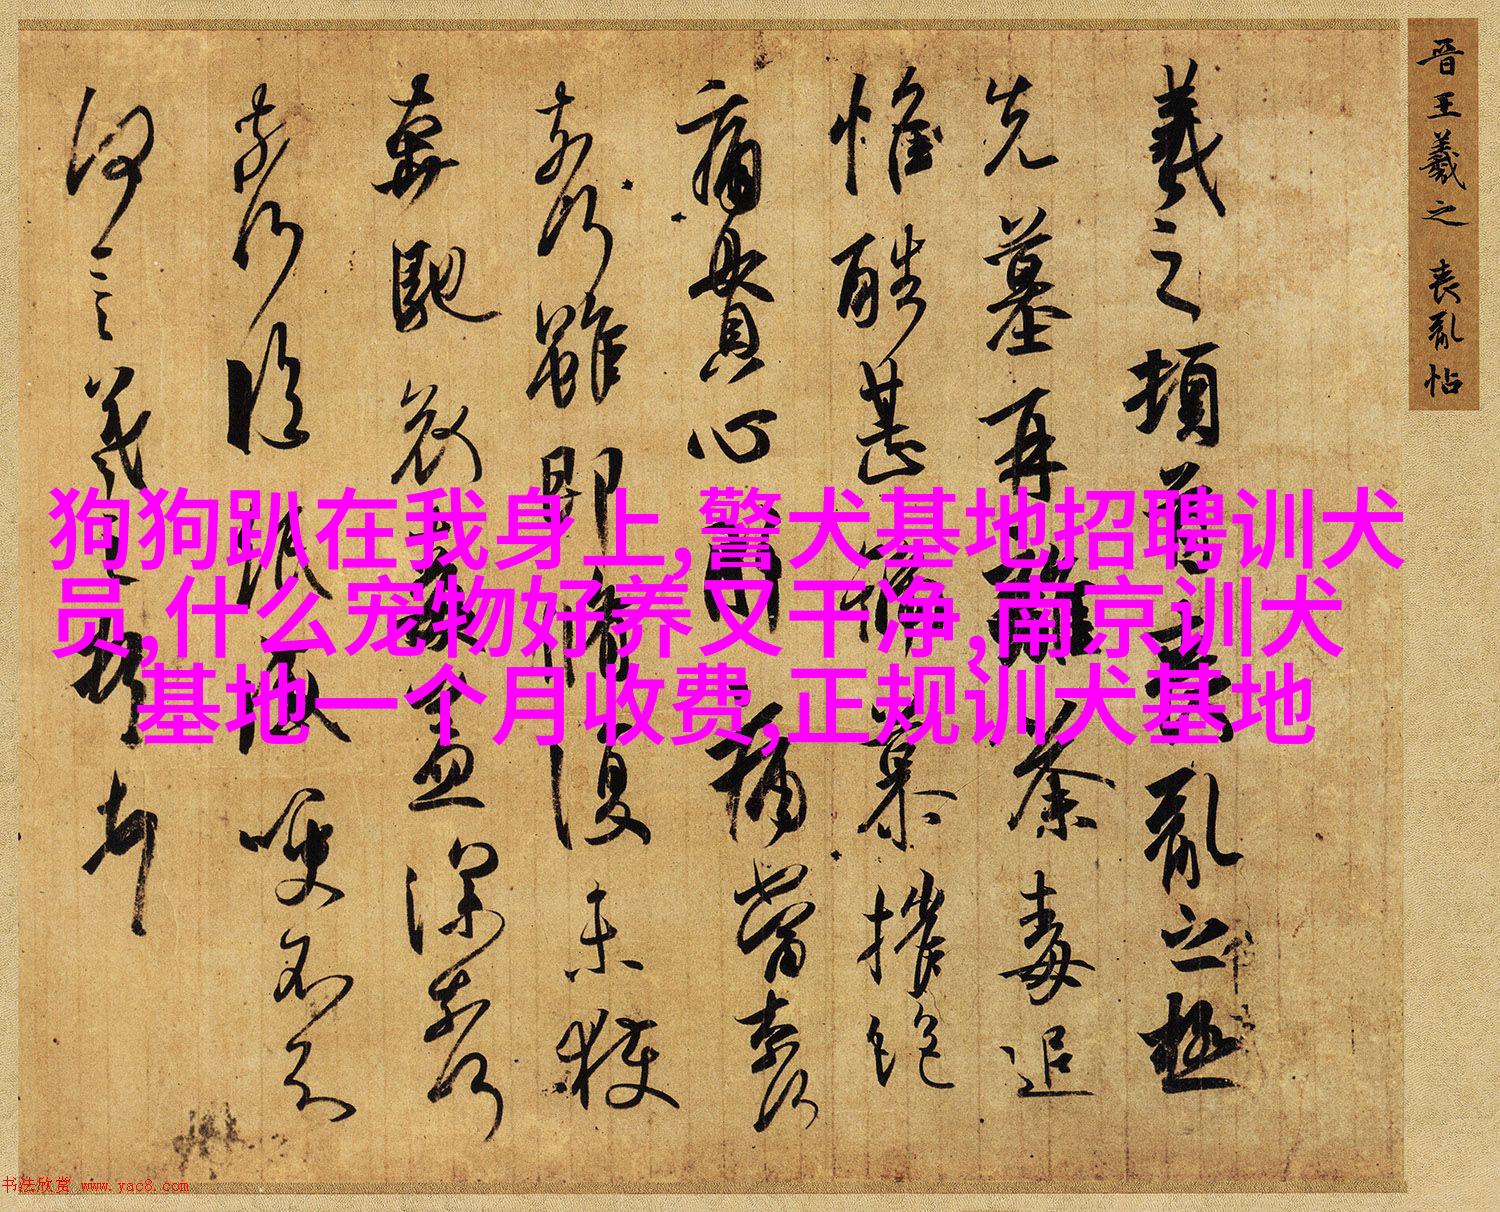 晋王羲之 喪亂帖
羲之頓首喪亂之極
先墓再離荼毒追
惟酷甚號慕摧絶
痛貫心肝痛當奈何
奈何雖即脩復未獲
奔馳哀毒益深奈何
奈何臨紙感哽不知
何言羲之頓首頓首
狗狗趴在我身上,警犬基地招聘训犬
员,什么宠物好养又干净,南京训犬
基地一个月收费,正规训犬基地
书法欣赏 www.yac8.com